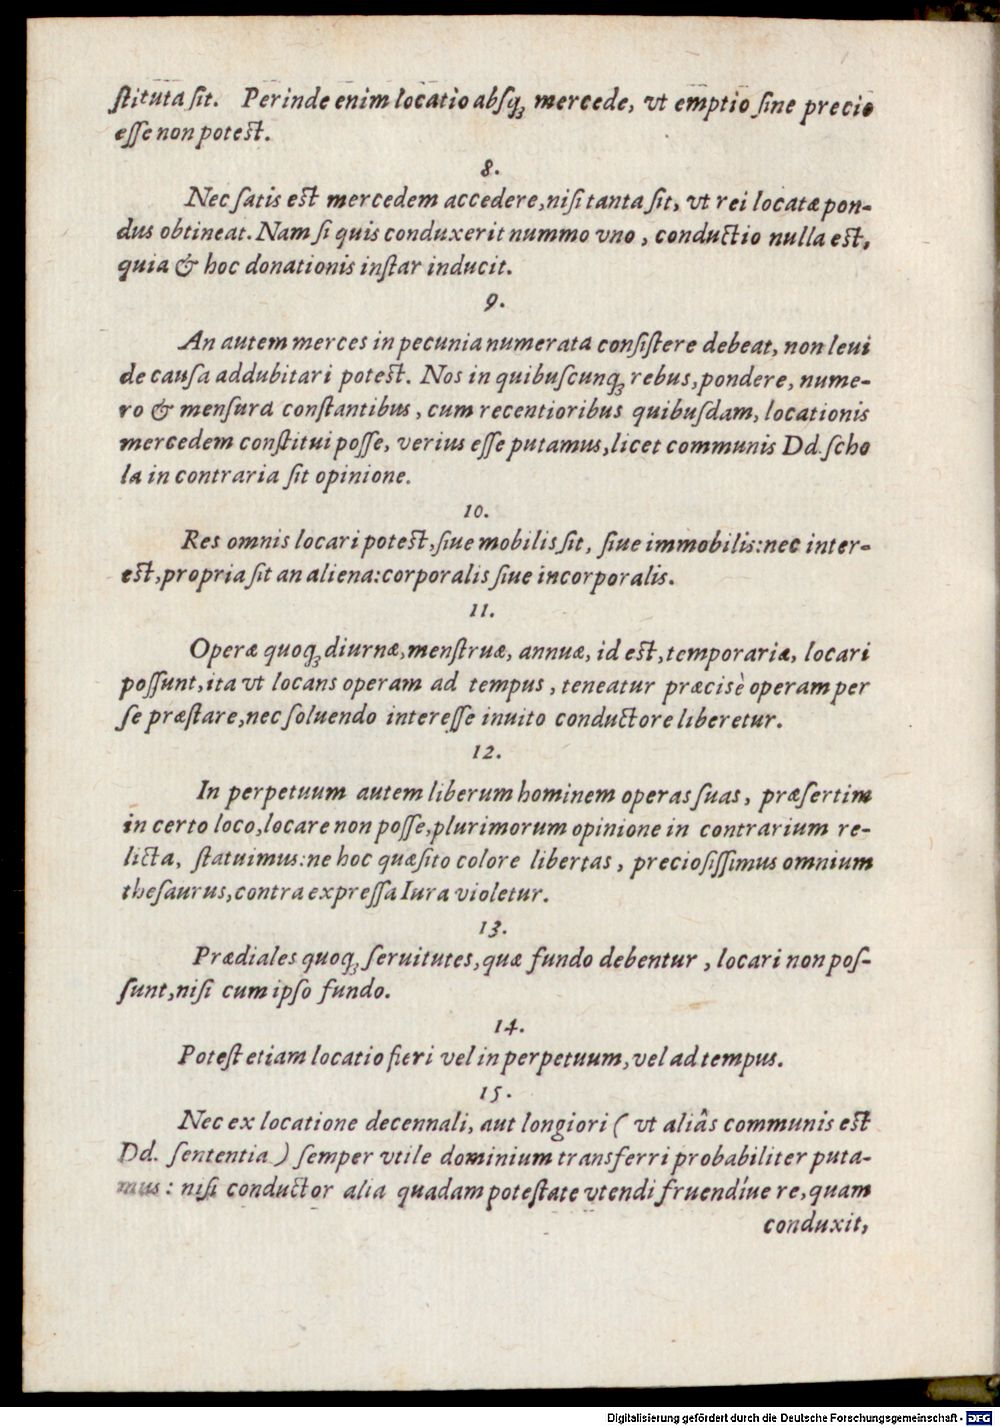 ſtituta ſit. Perinde enim locatio abſq; mercede, vt emptio ſine precio
eſſe non poteſt.
8.
Nec ſatis eſt mercedem accedere, niſi tanta ſit, vt rei locatæ pon-
dus obtineat. Nam ſi quis conduxerit nummo vno, conductio nulla eſt,
quia & hoc donationis inſtar inducit.
9.
An autem merces in pecunia numerata conſiſtere debeat, non leui
de cauſa addubitari poteſt. Nos in quibuſcunq; rebus, pondere, nume-
ro & menſura conſtantibus, cum recentioribus quibuſdam, locationis
mercedem conſtitui poſſe, verius eſſe putamus, licet communis Dd. ſcho
la in contraria ſit opinione.
10.
Res omnis locari poteſt, ſiue mobilis ſit, ſiue immobilis: nec inter-
eſt, propria ſit an aliena: corporalis ſiue incorporalis.
11.
Operæ quoq; diurnæ, menſtruæ, annuæ, id eſt, temporariæ, locari
poſſunt, ita vt locans operam ad tempus, teneatur præcisè operam per
ſe præſtare, nec ſoluendo intereſſe inuito conductore liberetur.
12.
In perpetuum autem liberum hominem operas ſuas, præſertim
in certo loco, locare non poſſe, plurimorum opinione in contrarium re-
licta, ſtatuimus: ne hoc quæſito colore libertas, precioſiſſimus omnium
theſaurus, contra expreſſa Iura violetur.
13.
Prædiales quoq; ſeruitutes, quæ fundo debentur, locari non poſ-
ſunt, niſi cum ipſo fundo.
14.
Poteſt etiam locatio fieri vel in perpetuum, vel ad tempus.
15.
Nec ex locatione decennali, aut longiori (vt aliâs communis eſt
Dd. ſententia) ſemper vtile dominium transferri probabiliter puta-
mus: niſi conductor alia quadam poteſtate vtendi fruendíue re, quam
conduxit,
Digitalisierung gefördert durch die Deutsche Forschungsgemeinschaft - DFG